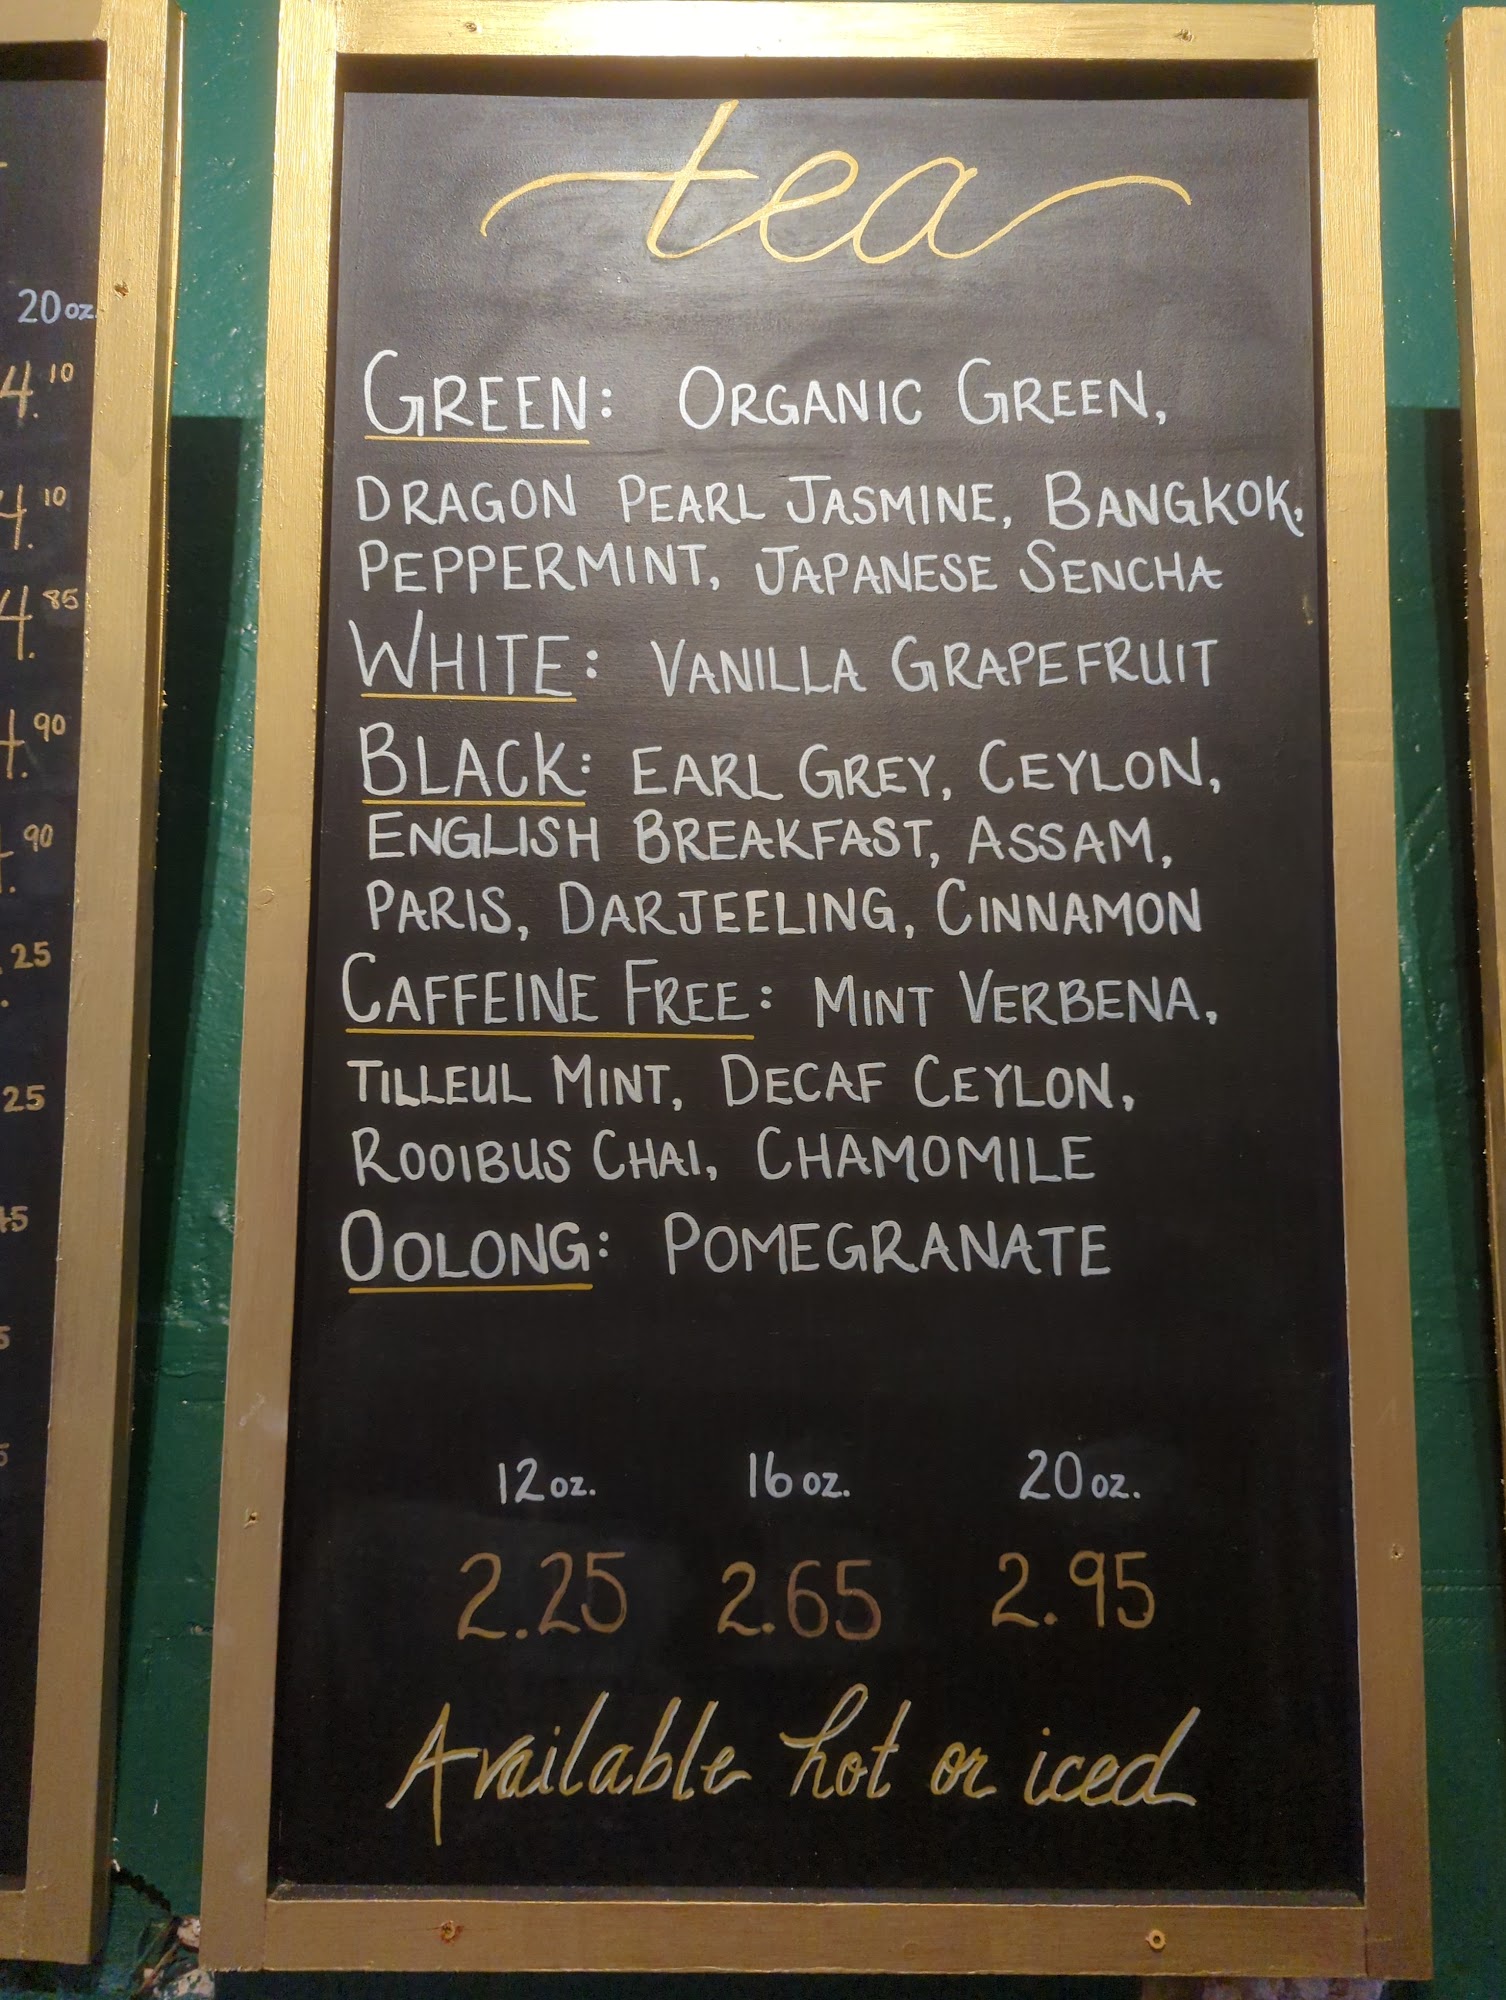 20oz
4.10
4.10
4.85
90
90
25
25
tea
GREEN: ORGANIC GREEN,
DRAGON PEARL JASMINE, BANGKOK,
PEPPERMINT, JAPANESE SENCHA
WHITE: VANILLA GRAPEFRUIT
BLACK: EARL GREY, CEYLON,
ENGLISH BREAKFAST, ASSAM,
PARIS, DARJEELING, CINNAMON
CAFFEINE FREE: MINT VERBENA,
TILLEUL MINT, DECAF CEYLON,
ROOIBUS CHAI, CHAMOMILE
OOLONG: POMEGRANATE
12oz. 16oz. 20oz.
2.25 2.65 2.95
Available hot or iced